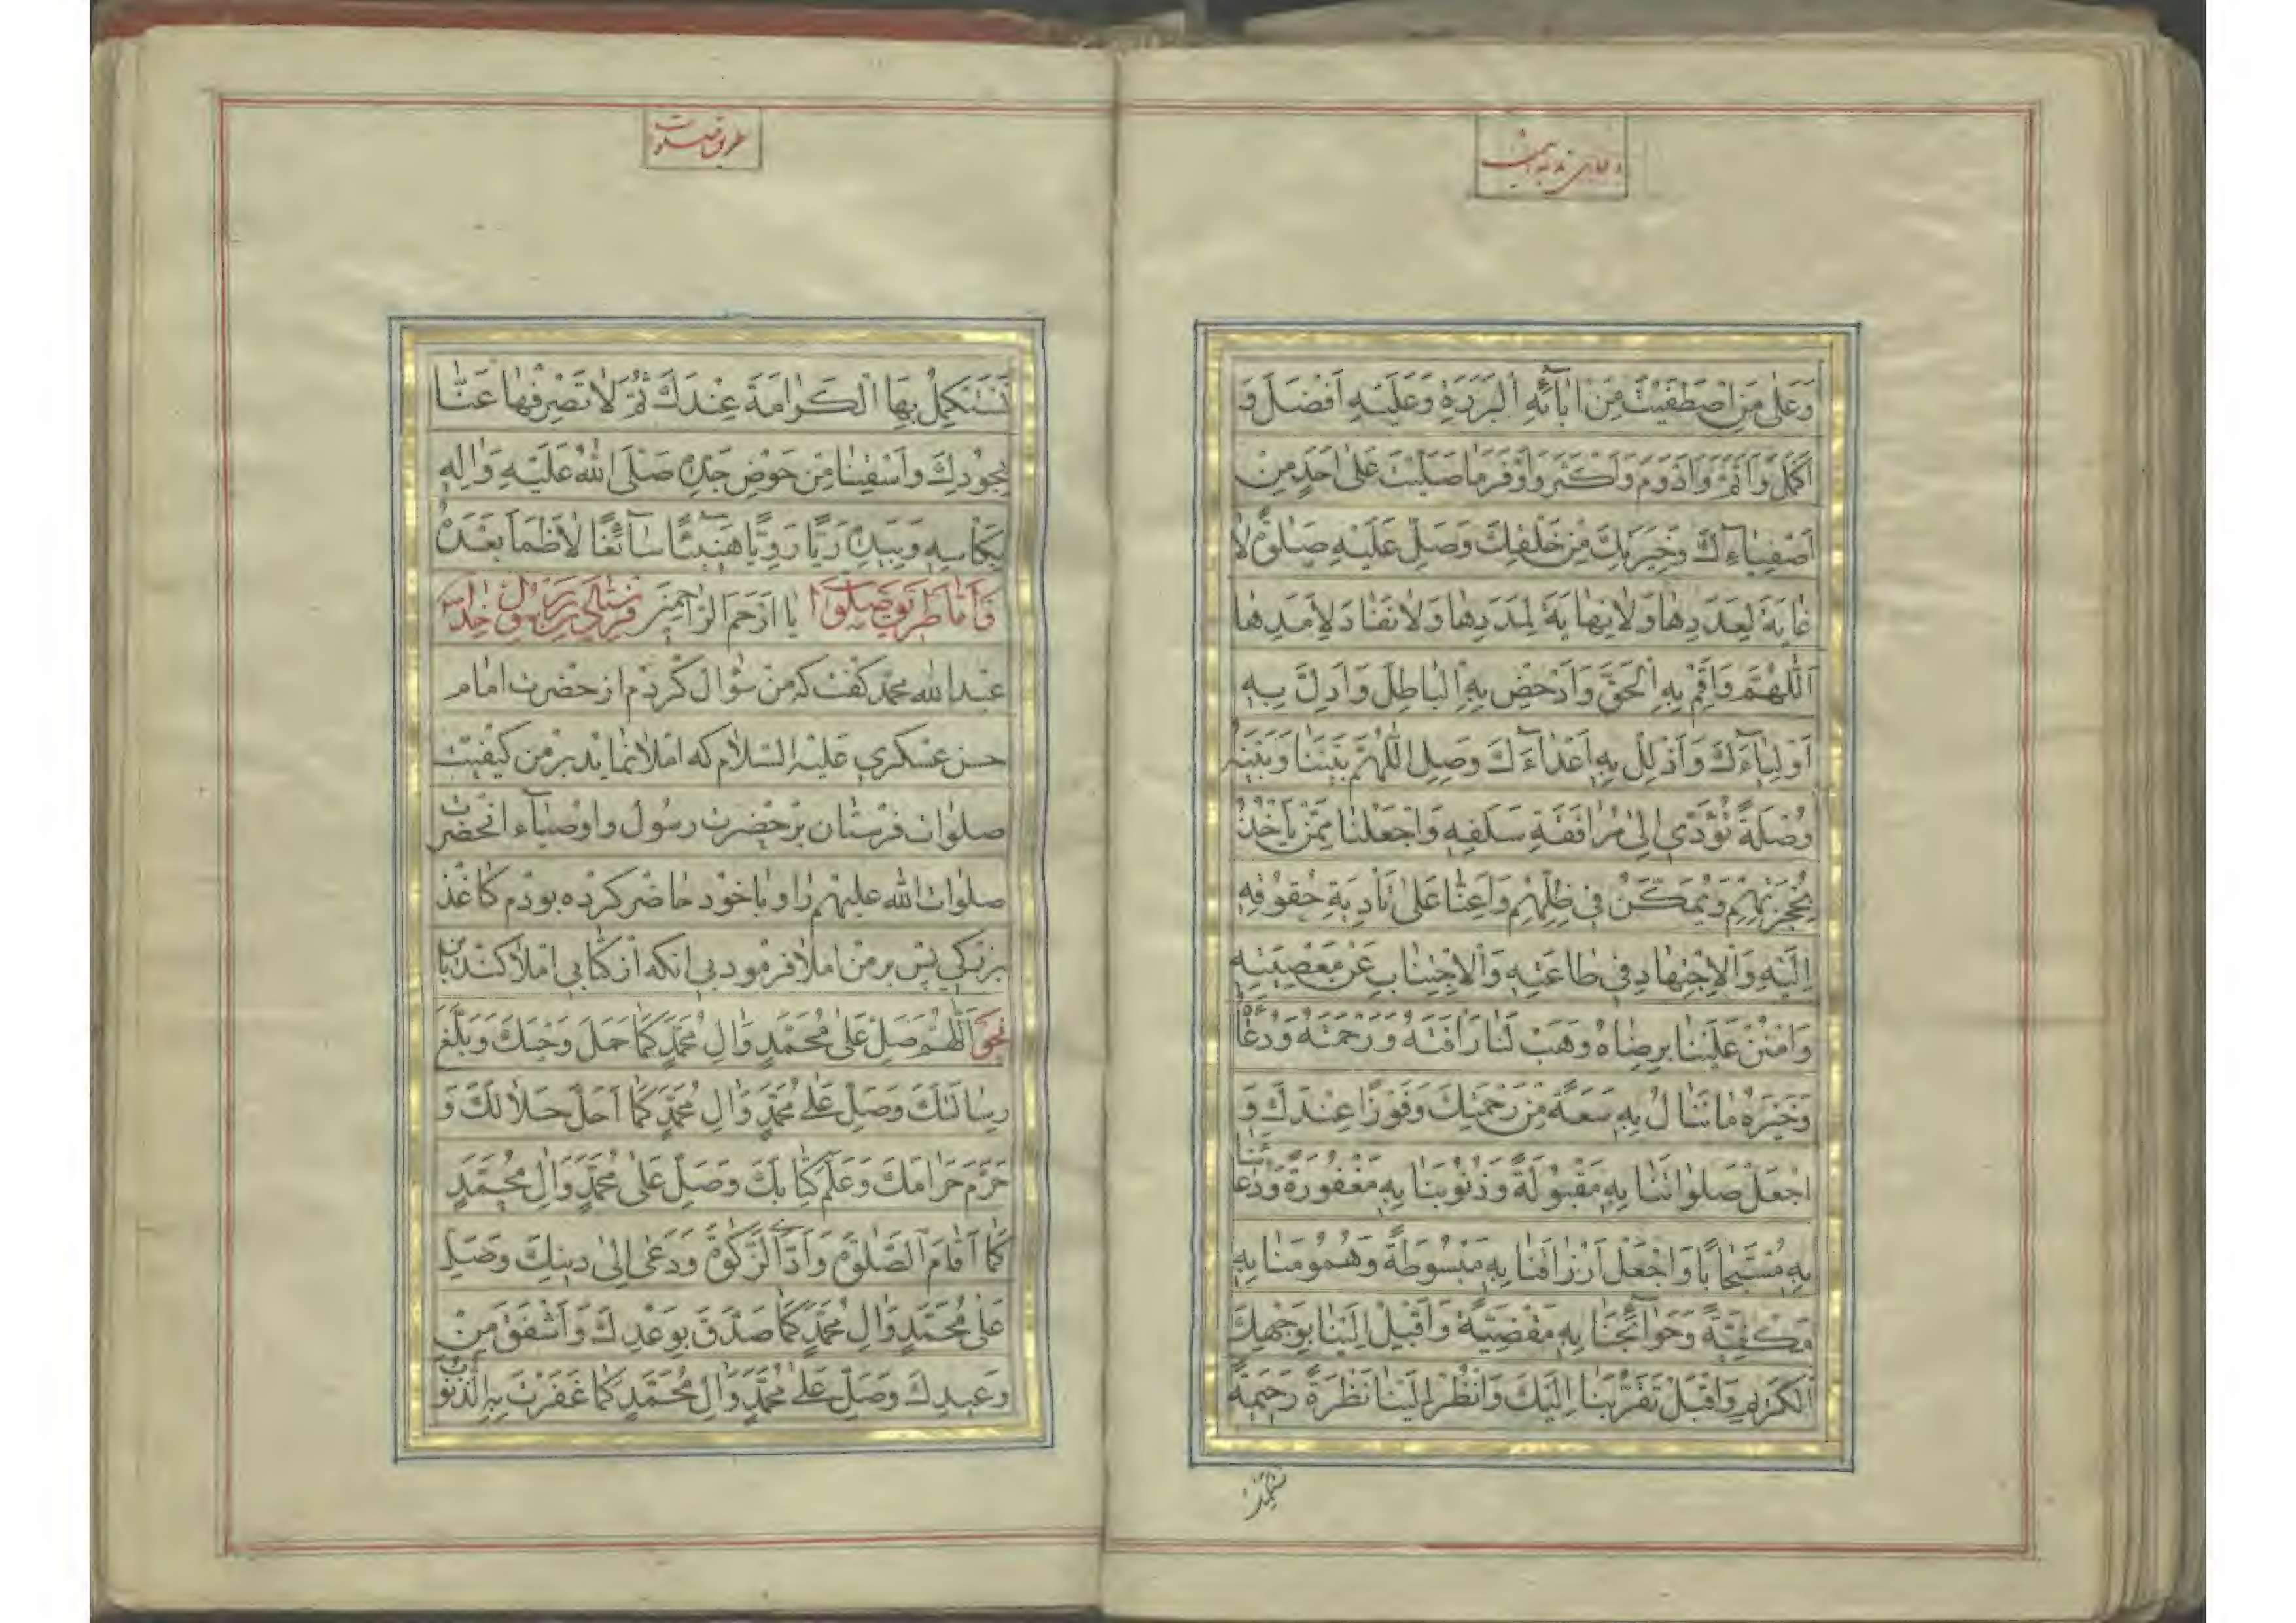 دعای ندبه است
وَعَلٰی مَنِ اصْطَفَیْتَ مِنْ اٰبآئِهِ الْبَرَرَةِ وَعَلَیْهِ اَفْضَلَ وَ
اَکْمَلَ وَاَتَمَّ وَاَدْوَمَ وَاَکْثَرَ وَاَوْفَرَ ما صَلَّیْتَ عَلٰی اَحَدٍ مِنْ
اَصْفِیاۤءِكَ وَخِیَرَتِكَ مِنْ خَلْقِكَ وَصَلِّ عَلَیْهِ صَلٰوةً لا
غایَةَ لِعَدَدِها وَلا نِهایَةَ لِمَدَدِها وَلا نَفادَ لِاَمَدِها
اَللّٰهُمَّ وَاَقِمْ بِهِ الْحَقَّ وَاَدْحِضْ بِهِ الْباطِلَ وَاَدِلْ بِهِ
اَوْلِیاۤءَكَ وَاَذْلِلْ بِهِ اَعْداۤءَكَ وَصِلِ اللّٰهُمَّ بَیْنَنا وَبَیْنَهُ
وُصْلَةً تُؤَدّی اِلٰی مُرافَقَةِ سَلَفِهِ وَاجْعَلْنا مِمَّنْ یَاْخُذُ
بِحُجْزَتِهِمْ وَیُمَکَّنُ فی ظِلِّهِمْ وَاَعِنّا عَلٰی تَاْدِیَةِ حُقُوقِهِ
اِلَیْهِ وَالْاِجْتِهادِ فی طاعَتِهِ وَالْاِجْتِنابِ عَنْ مَعْصِیَتِهِ
وَامْنُنْ عَلَیْنا بِرِضاهُ وَهَبْ لَنا رَاْفَتَهُ وَرَحْمَتَهُ وَدُعاۤءَهُ
وَخَیْرَهُ ما نَنالُ بِهِ سَعَةً مِنْ رَحْمَتِكَ وَفَوْزًا عِنْدَكَ وَ
اجْعَلْ صَلَواتَنا بِهِ مَقْبُولَةً وَذُنُوبَنا بِهِ مَغْفُورَةً وَدُعاۤئَنا
بِهِ مُسْتَجابًا وَاجْعَلْ اَرْزاقَنا بِهِ مَبْسُوطَةً وَهُمُومَنا بِهِ
مَکْفِیَّةً وَحَوآئِجَنا بِهِ مَقْضِیَّةً وَاَقْبِلْ اِلَیْنا بِوَجْهِكَ
الْکَریمِ وَاقْبَلْ تَقَرُّبَنا اِلَیْكَ وَانْظُرْ اِلَیْنا نَظْرَةً رَحیمَةً
نستکمل
طریق صلوات
نَسْتَکْمِلُ بِهَا الْکَرامَةَ عِنْدَكَ ثُمَّ لا تَصْرِفْها عَنّا
بِجُودِكَ وَاَسْقِنا مِنْ حَوْضِ جَدِّهِ صَلَّی اللّٰهُ عَلَیْهِ وَاٰلِهِ
بِکَاْسِهِ وَبِیَدِهِ رَیًّا رَوِیًّا هَنیئًا سآئِغًا لا ظَمَاَ بَعْدَهُ
یا اَرْحَمَ الرّاحِمینَ فَاَمّا طریق صلوات فرستادن بر رسول خدا
عبدالله محمّد گفت که من سؤال کردم از حضرت امام
حسن عسکری علیه السّلام که املا نماید بر من کیفیّت
صلوات فرستادن بر حضرت رسول و اوصیاۤء انحضرت
صلوات الله علیهم را و با خود حاضر کرده بودم کاغذ
بزرگی پس بر من املا فرمود بی انکه از کتابی املا کند باین
نحو اَللّٰهُمَّ صَلِّ عَلٰی مُحَمَّدٍ وَاٰلِ مُحَمَّدٍ کَما حَمَلَ وَحْیَكَ وَبَلَّغَ
رِسالاتِكَ وَصَلِّ عَلٰی مُحَمَّدٍ وَاٰلِ مُحَمَّدٍ کَما اَحَلَّ حَلالَكَ وَ
حَرَّمَ حَرامَكَ وَعَلَّمَ کِتابَكَ وَصَلِّ عَلٰی مُحَمَّدٍ وَاٰلِ مُحَمَّدٍ
کَما اَقامَ الصَّلٰوةَ وَاَدَّی الزَّکٰوةَ وَدَعٰی اِلٰی دینِكَ وَصَلِّ
عَلٰی مُحَمَّدٍ وَاٰلِ مُحَمَّدٍ کَما صَدَّقَ بِوَعْدِكَ وَاَشْفَقَ مِنْ
وَعیدِكَ وَصَلِّ عَلٰی مُحَمَّدٍ وَاٰلِ مُحَمَّدٍ کَما غَفَرْتَ بِهِ الذُّنُوبَ